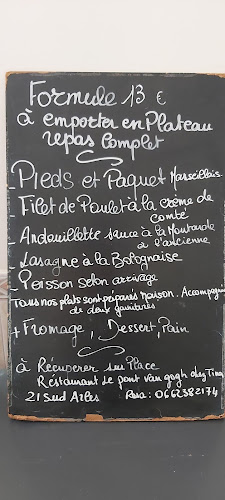 Formule 13 €
à emporter en Plateau
repas Complet
- Pieds et Paquet Marseillais
- Filet de Poulet à la crème de
comté
- Andouillette sauce à la Moutarde
à l'ancienne
- Lasagne à la Bolognaise
- Poisson selon arrivage
Tous nos plats sont préparés maison. Accompagné
de deux garnitures
+ Fromage, Dessert, Pain
à Récuperer sur Place
Restaurant le pont van gogh chez Tina
21 Sud Arles Resa: 0662382174